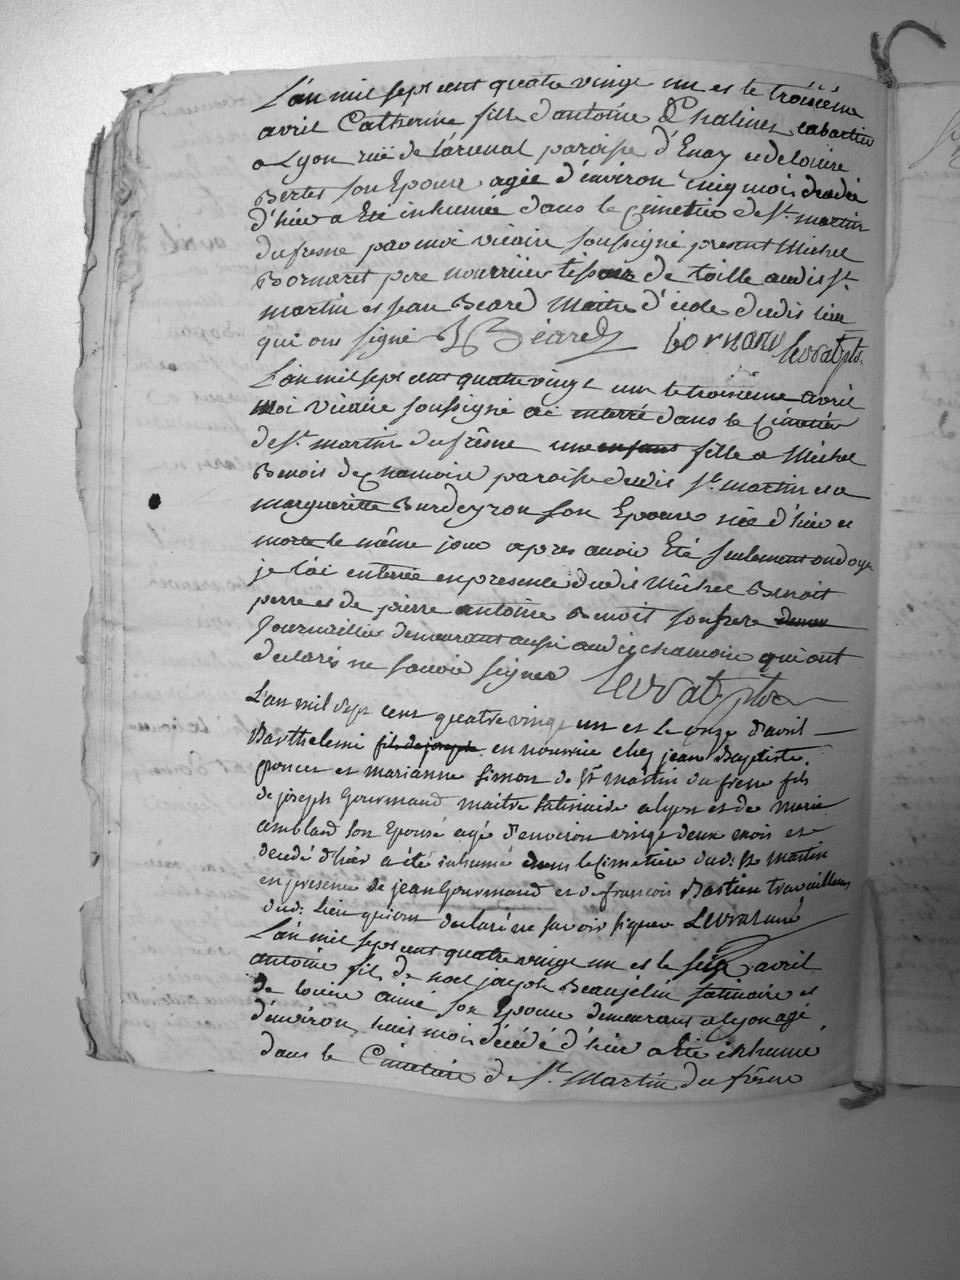 L'an mil sept cent quatre vingt un et le troisième
avril Catherine fille d'antoine Chalines cabartier
a Lyon ruë de l'arcenal paroisse d'Enay et de loüise
Bertet son Epouse agée d'environ cinq mois dcedée
d'hier a Eté inhumée dans le Cimetiere de St. martin
du fresne par moi vicaire soussigné present Michel
Bornaret pere nourricier tisseur de toille audit St.
martin et jean Beard Maitre d'école dudit lieu
qui ont signé B Béard bornarel Levrat ptre.
L'an mil sept cent quatre vingt un le troisième avril
Moi vicaire soussigné ai enterré dans le Cimetier
de St. martin du frêsne une enfant fille a Michel
Benoit de Chamoise paroisse dudit St. martin et a
marguerite Burdeyron son Epouse née d'hier et
morte le même jour apres avoir Eté seulement ondoyée
je l'ai enterrée en presence dudit Michel Benoit
perre et de pierre antoine Benoit son frere
Journaillier demeurant aussi audit chamoise qui ont
declarés ne savoir signer Levrat ptre
L'an mil sept cent quatre vingt un et le onze d'avril
Barthelemi fils de joseph en nourrice chez jean Baptiste
poncet et marianne Simon de St martin du fresne fils
de joseph Gourmand maitre satinaire a lyon et de Marie
amblard son Epouse agé d'environ vingt deux mois et
decedé d'hier a été inhumé dans le Cimetiere dud. St martin
en presence de jean Gourmand et de francois Bastien travailleurs
dud. Lieu qui ont declaré ne savoir signer Levrat curé
L'an mil sept cent quatre vingt un et le seize avril
antoine fils de noel joseph Beaujelin satinaire et
de loüise aimé son Epouse demeurant a lyon agé
d'environ huit mois décédé d'hier a Eté inhumé
dans le Cimetiere de St. Martin du frêsne